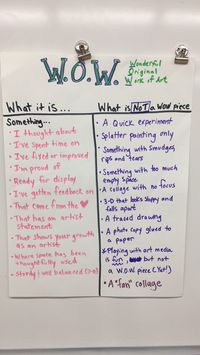 W.O.W.
Wonderful
Original
Work of Art
What it is...
Something...
• I thought about
• I've spent time on
• I've fixed or improved
• I'm proud of
• Ready for display
• I've gotten feedback on
• That came from the ♥
• That has an artist
statement
• That shows your growth
as an artist
• Where space has been
thoughtfully used
• Sturdy & well balanced (3-D)
What is NOT a WOW piece
• A Quick experiment
• Splatter painting only
• Something with smudges,
rips and tears
• Something with too much
empty space
• A collage with no focus
• 3-D that looks sloppy and
falls apart
• A traced drawing
• A photo copy glued to
a paper
* Playing with art media
is fun, but not
a W.O.W piece (Yet!)
• A "fan" collage